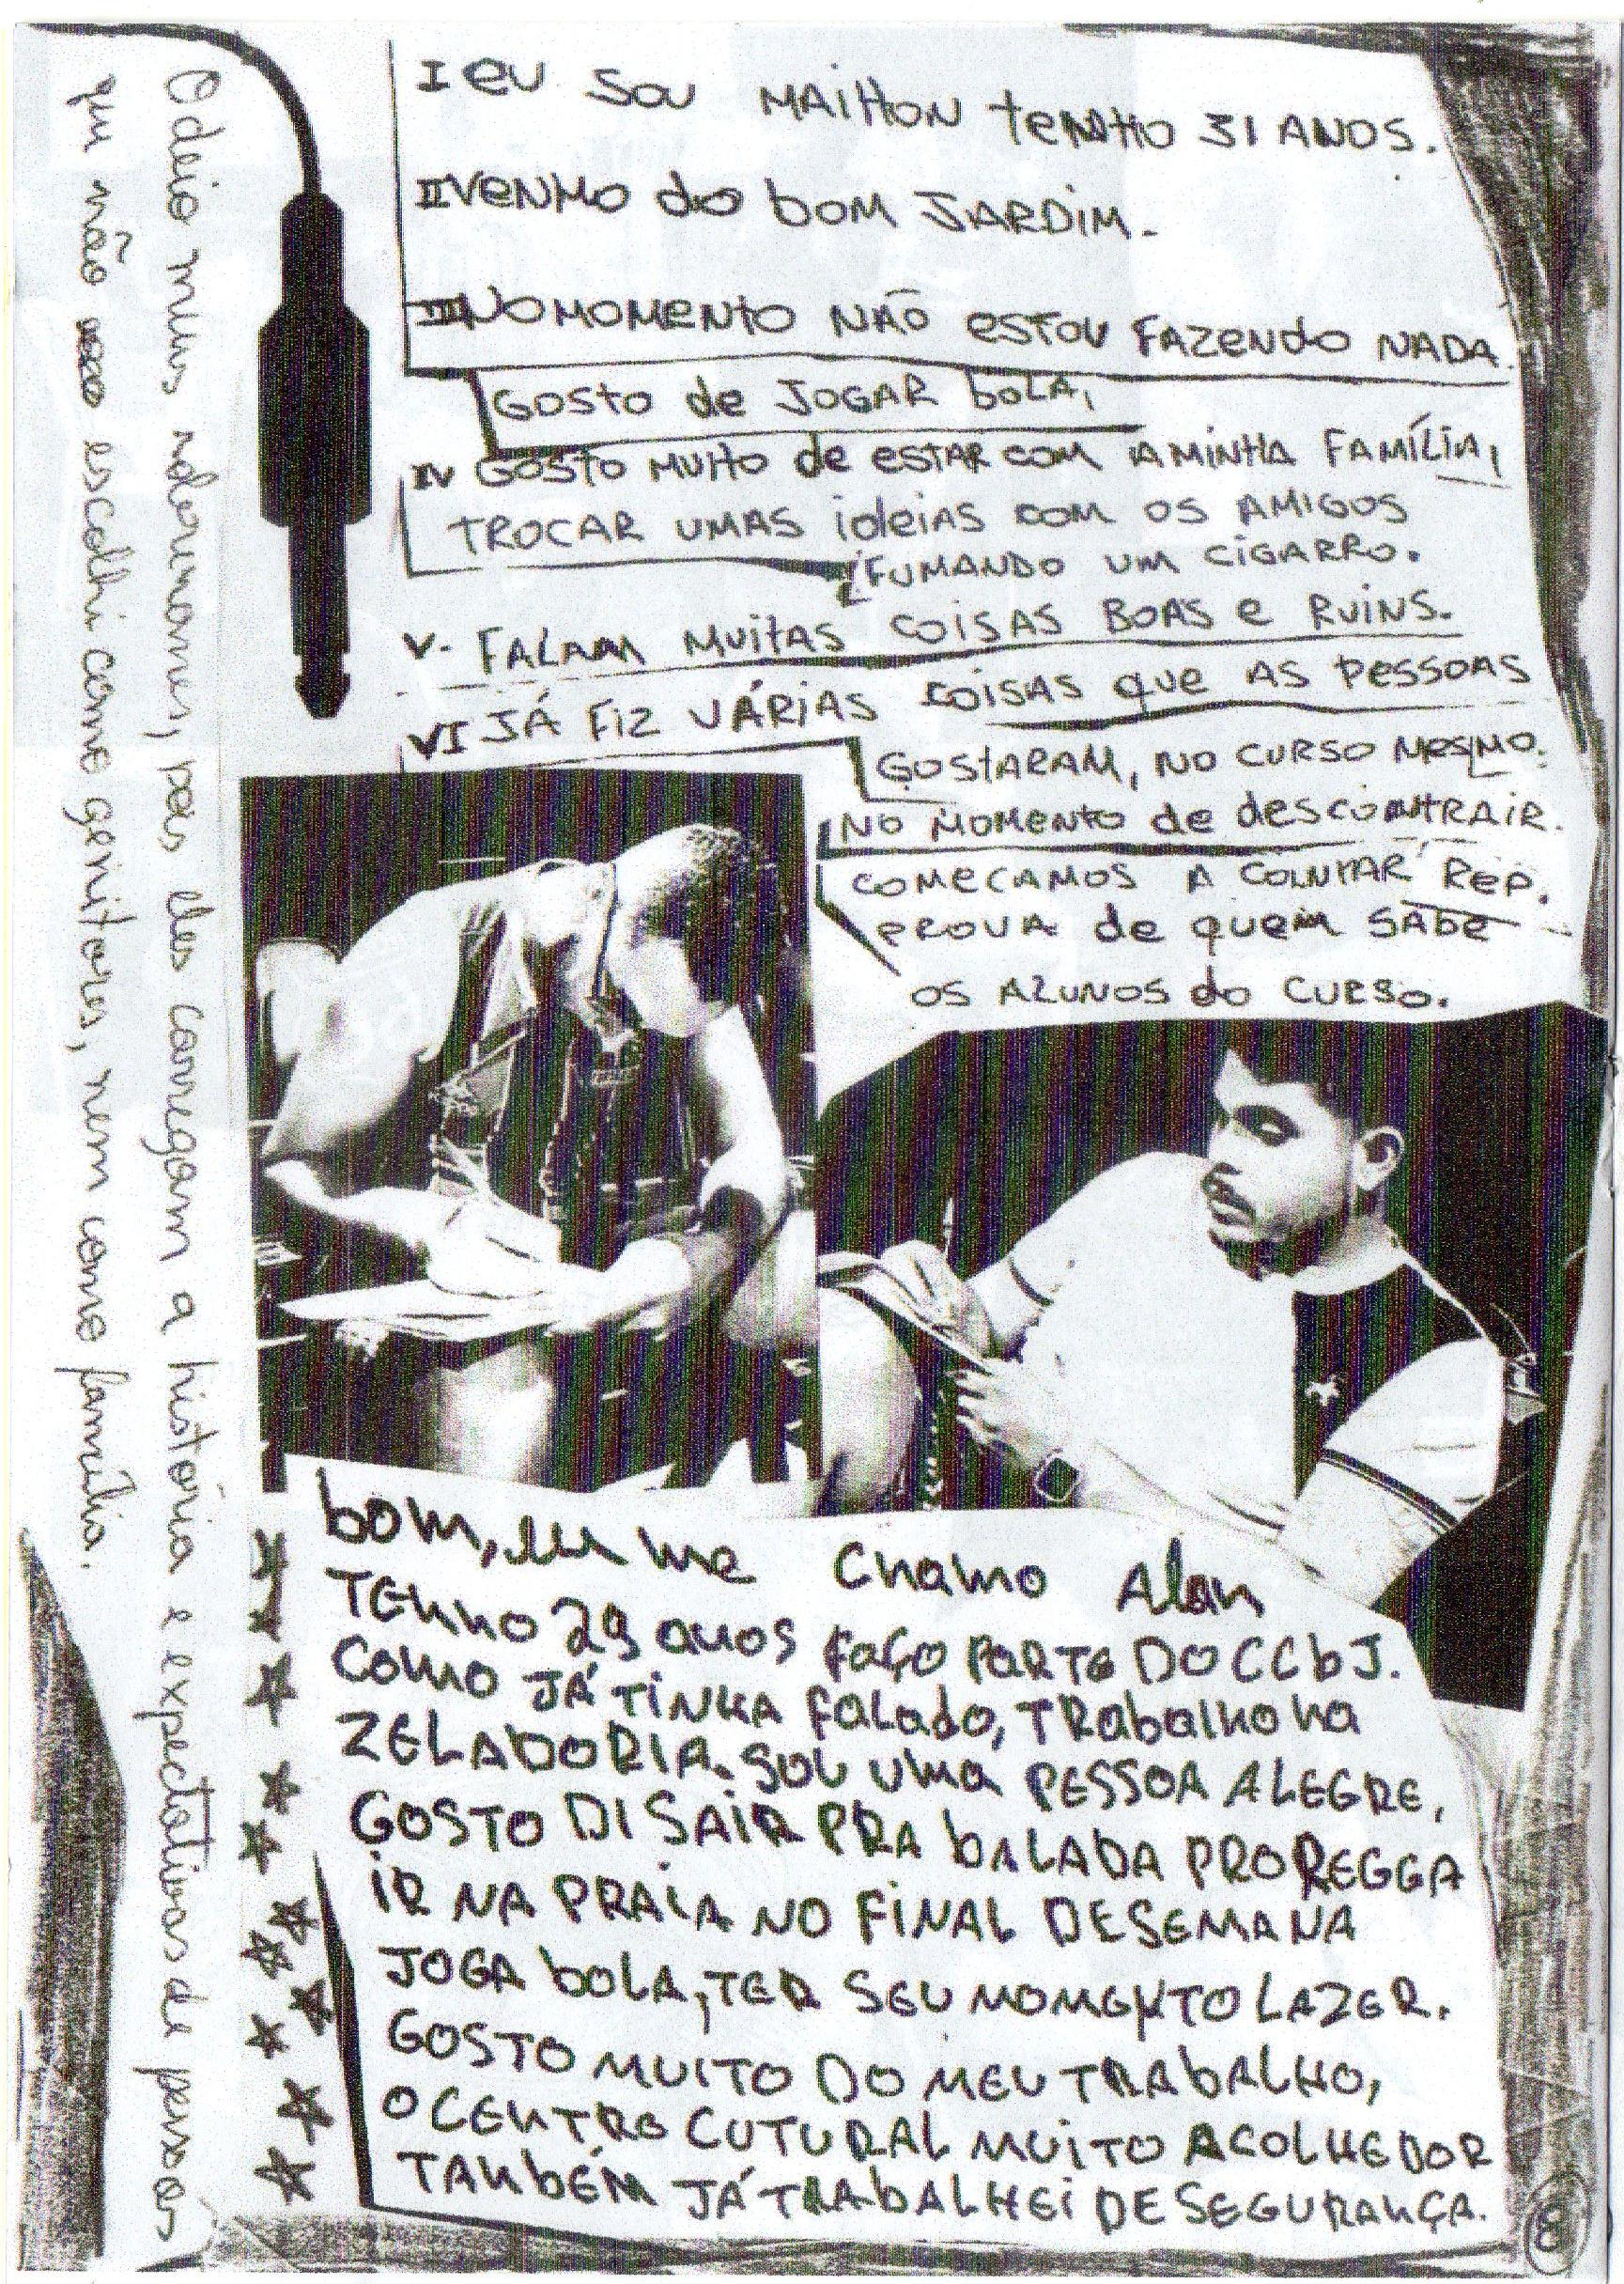 I EU SOU MAITHON TENHO 31 ANOS.
II VENHO do bom JARDIM.
III NO MOMENTO NÃO ESTOU FAZENDO NADA.
GOSTO de JOGAR bOLA,
IV GOSTO MUITO de ESTAR COM A MINHA FAMÍLIA,
TROCAR UMAS ideias COM OS AMIGOS
FUMANDO UM CIGARRO.
V. FALAM MUITAS COISAS BOAS e RUINS.
VI JÁ FIZ VÁRIAS COISAS que AS PESSOAS
GOSTARAM, NO CURSO MESMO.
NO MOMENTO de descontrair.
COMECAMOS A CONTAR REP.
PROVA de quem SABE
OS ALUNOS do CURSO.
Odeio meus sobrenomes, pois eles carregam a história e expectativas de pessoas
que não escolhi como genitores, nem como família.
bom, eu me chamo Alan
TENHO 29 anos FAÇO PARTE DO CCbJ.
COMO JÁ TINHA FALADO, TRAbalho na
ZELADORIA. SOU uma PESSOA ALEGRE,
GOSTO DI SAIR PRA bALADA PRO REGGA
IR NA PRAIA NO FINAL DE SEMANA
JOGA bOLA, TER SEU MOMENTO LAZER.
GOSTO MUITO DO MEU TRAbALHO,
O CENTRO CUTURAL MUITO ACOLHEDOR
TANbÉM JÁ TRAbALHEI DE SEGURANÇA.
8